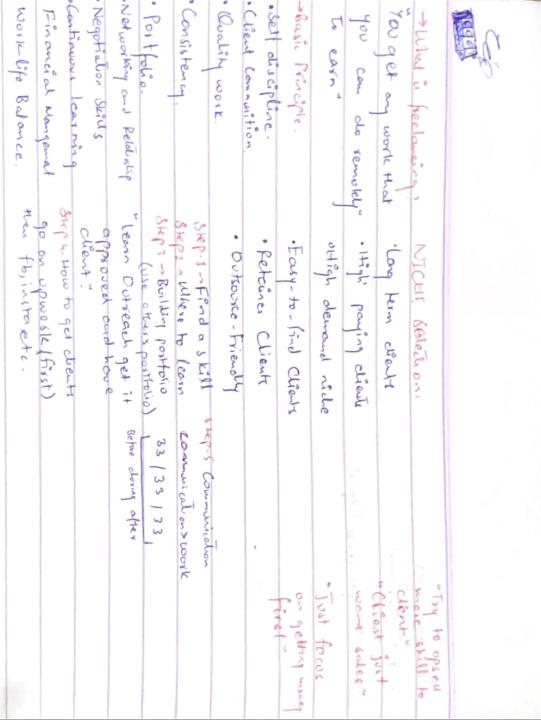 → What is freelancing,
"You get any work that
you can do remotely"
to earn"
→ Basic Principle.
• Self discipline.
• Client Communition
• Quality work.
• Consistency.
• Portfolio.
• Networking and Relationship
• Negotiation Skills
• Continuous learning
Financial Mangemet
Work life Balance.
NICHE Selection:
• Long term clients
• High paying clients
• High demand niche
• Easy-to-find Clients
• Retainer Clients
• Outsource-Friendly
Step-1 → Find a skill
Step 2 → Where to learn
Step 3 → Building portfolio
(use others portfolio)
"learn Outreach get it
approved and have
client"
Step 4. How to get clients
go on upwork (first)
then fb, insta etc.
Step-5 Communication
Communication > work
33 / 33 / 33
Before during after
"Try to upsell
more skill to
client"
"Client just
want sales"
"Just focus
on getting money
first"